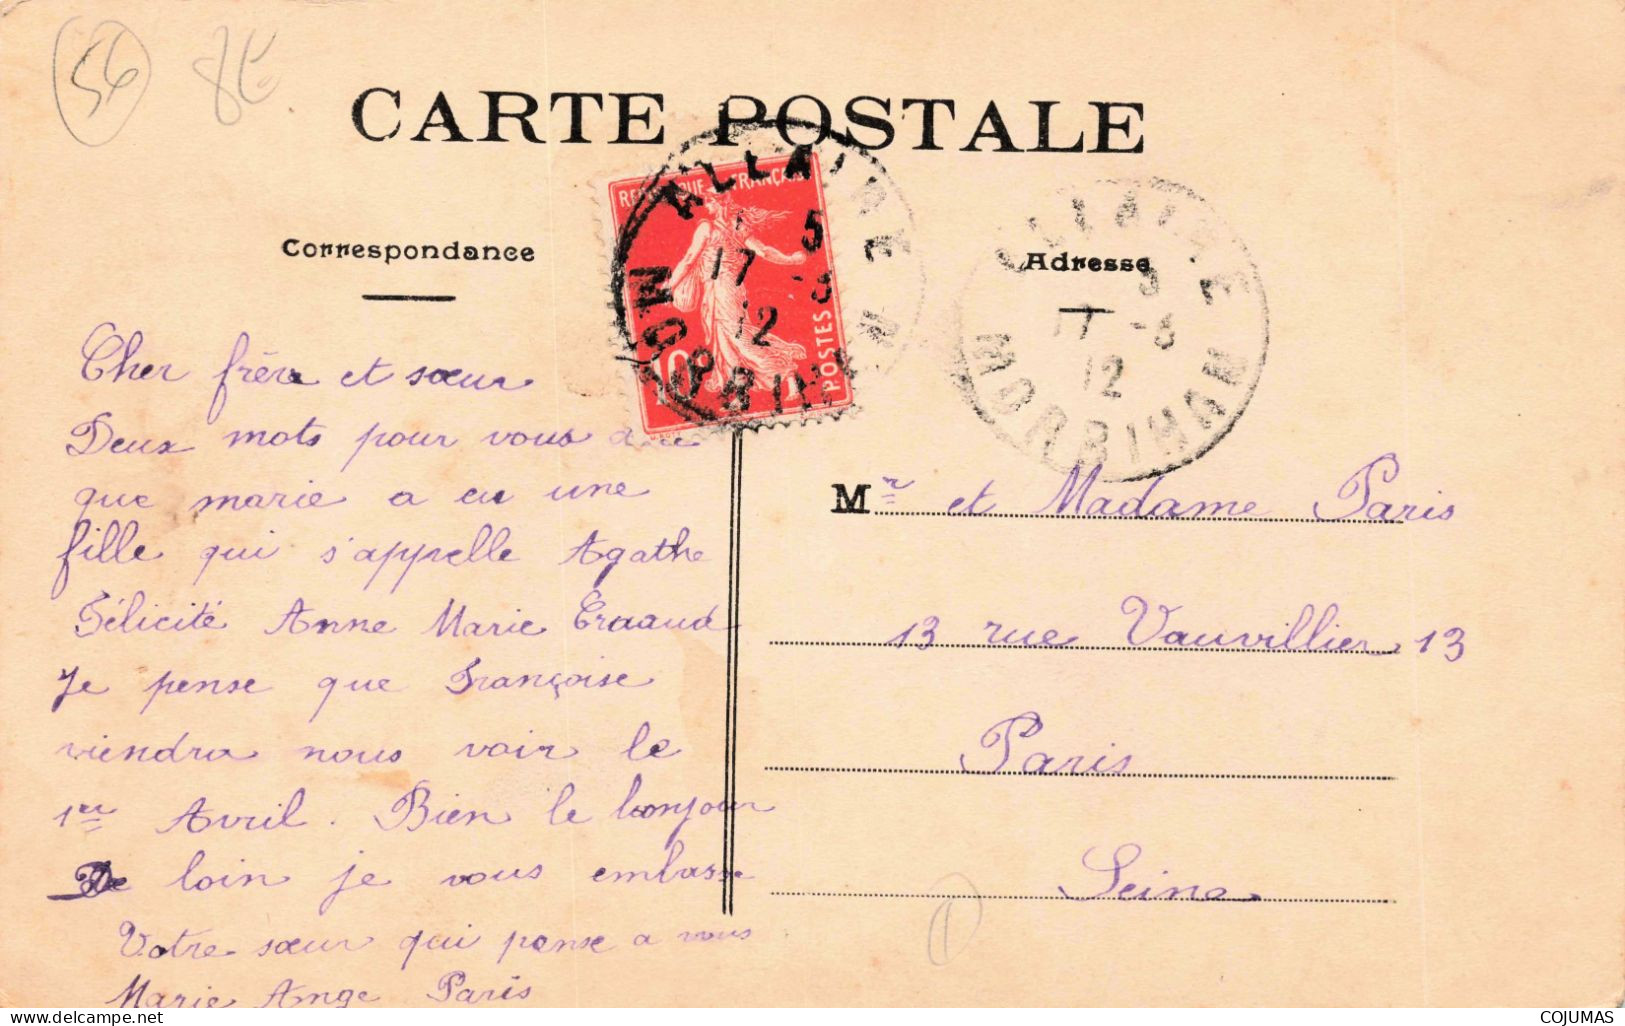 56 8€
CARTE POSTALE
Correspondance
Adresse
REPUBLIQUE FRANÇAISE
10c
POSTES
ALLAIRE
5
17 -3
12
MORBIHAN
ALLAIRE
5
17 -3
12
MORBIHAN
Cher frère et sœur
Deux mots pour vous dire
que marie a eu une
fille qui s'appelle Agathe
Félicité Anne Marie
Je pense que Françoise
viendra nous voir le
1er Avril. Bien le bonjour
De loin je vous embasse
Votre sœur qui panse a vous
Marie Ange Paris
Mr et Madame Paris
13 rue Vauvillier 13
Paris
Seine
COJUMAS